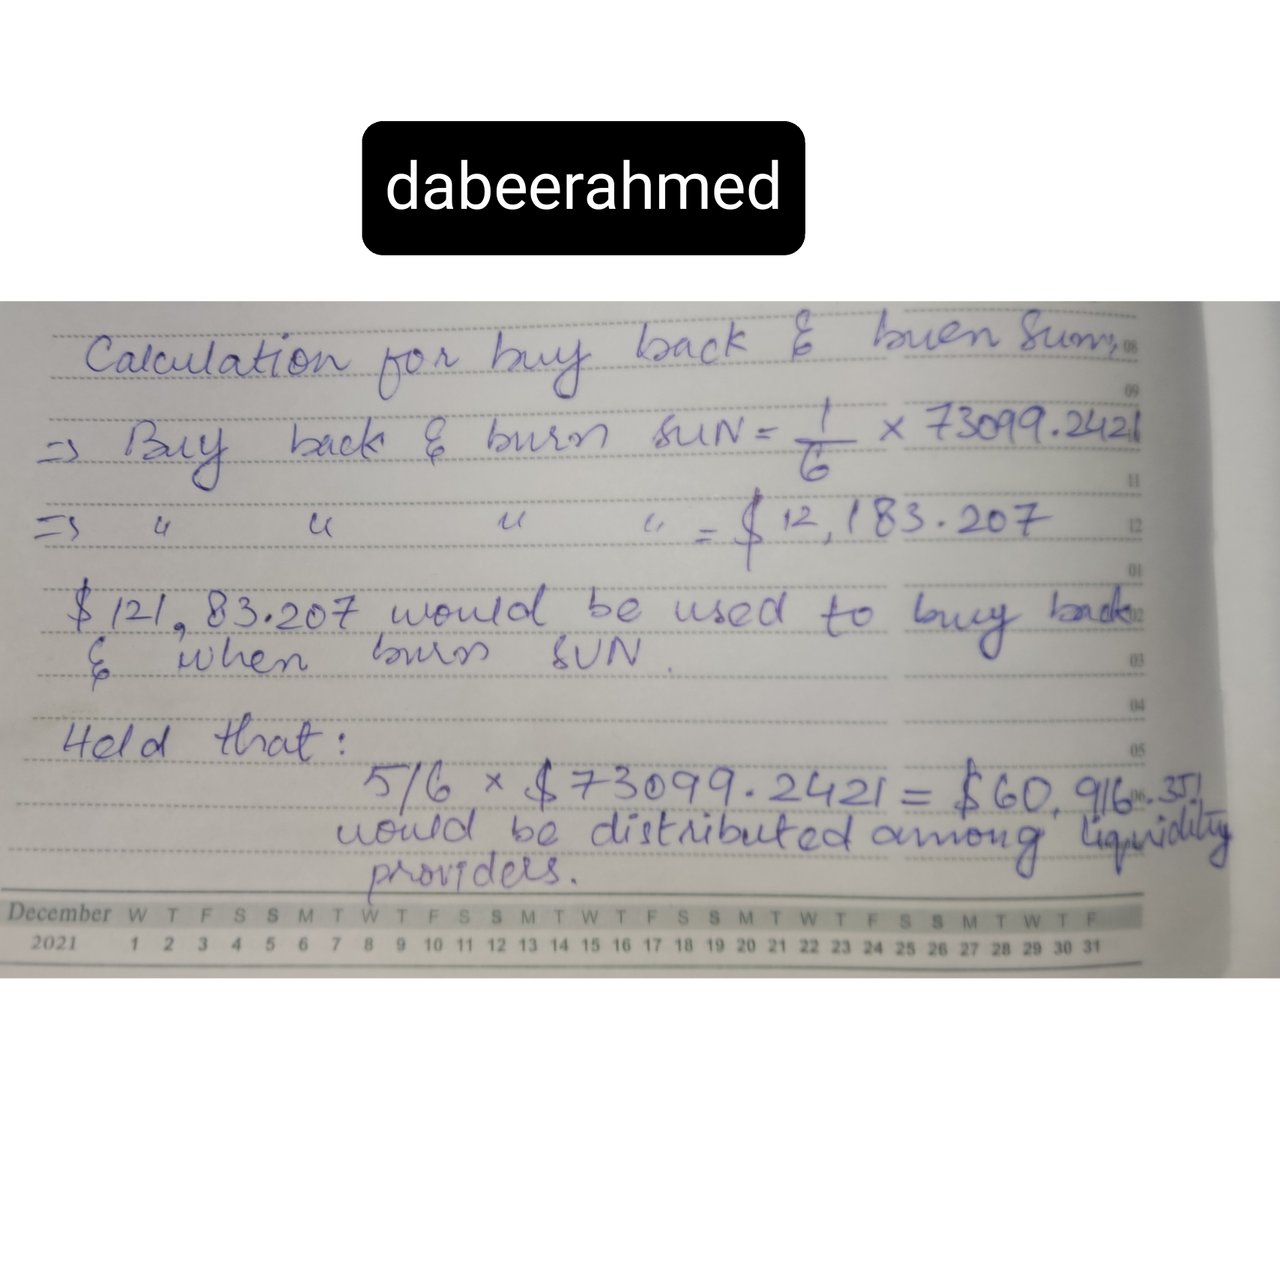 dabeerahmed
Calculation for buy back & buen Sum,
08
09
=> Buy back & burn SUN = 1/6 × 73099.2421
11
=> " " " " = $12,183.207
12
01
$121,83.207 would be used to buy back
02
& when burn SUN.
03
04
Held that:
05
5/6 × $73099.2421 = $60,916.351
06
would be distributed among liquidity
providers.
December W T F S S M T W T F S S M T W T F S S M T W T F S S M T W T F
2021 1 2 3 4 5 6 7 8 9 10 11 12 13 14 15 16 17 18 19 20 21 22 23 24 25 26 27 28 29 30 31